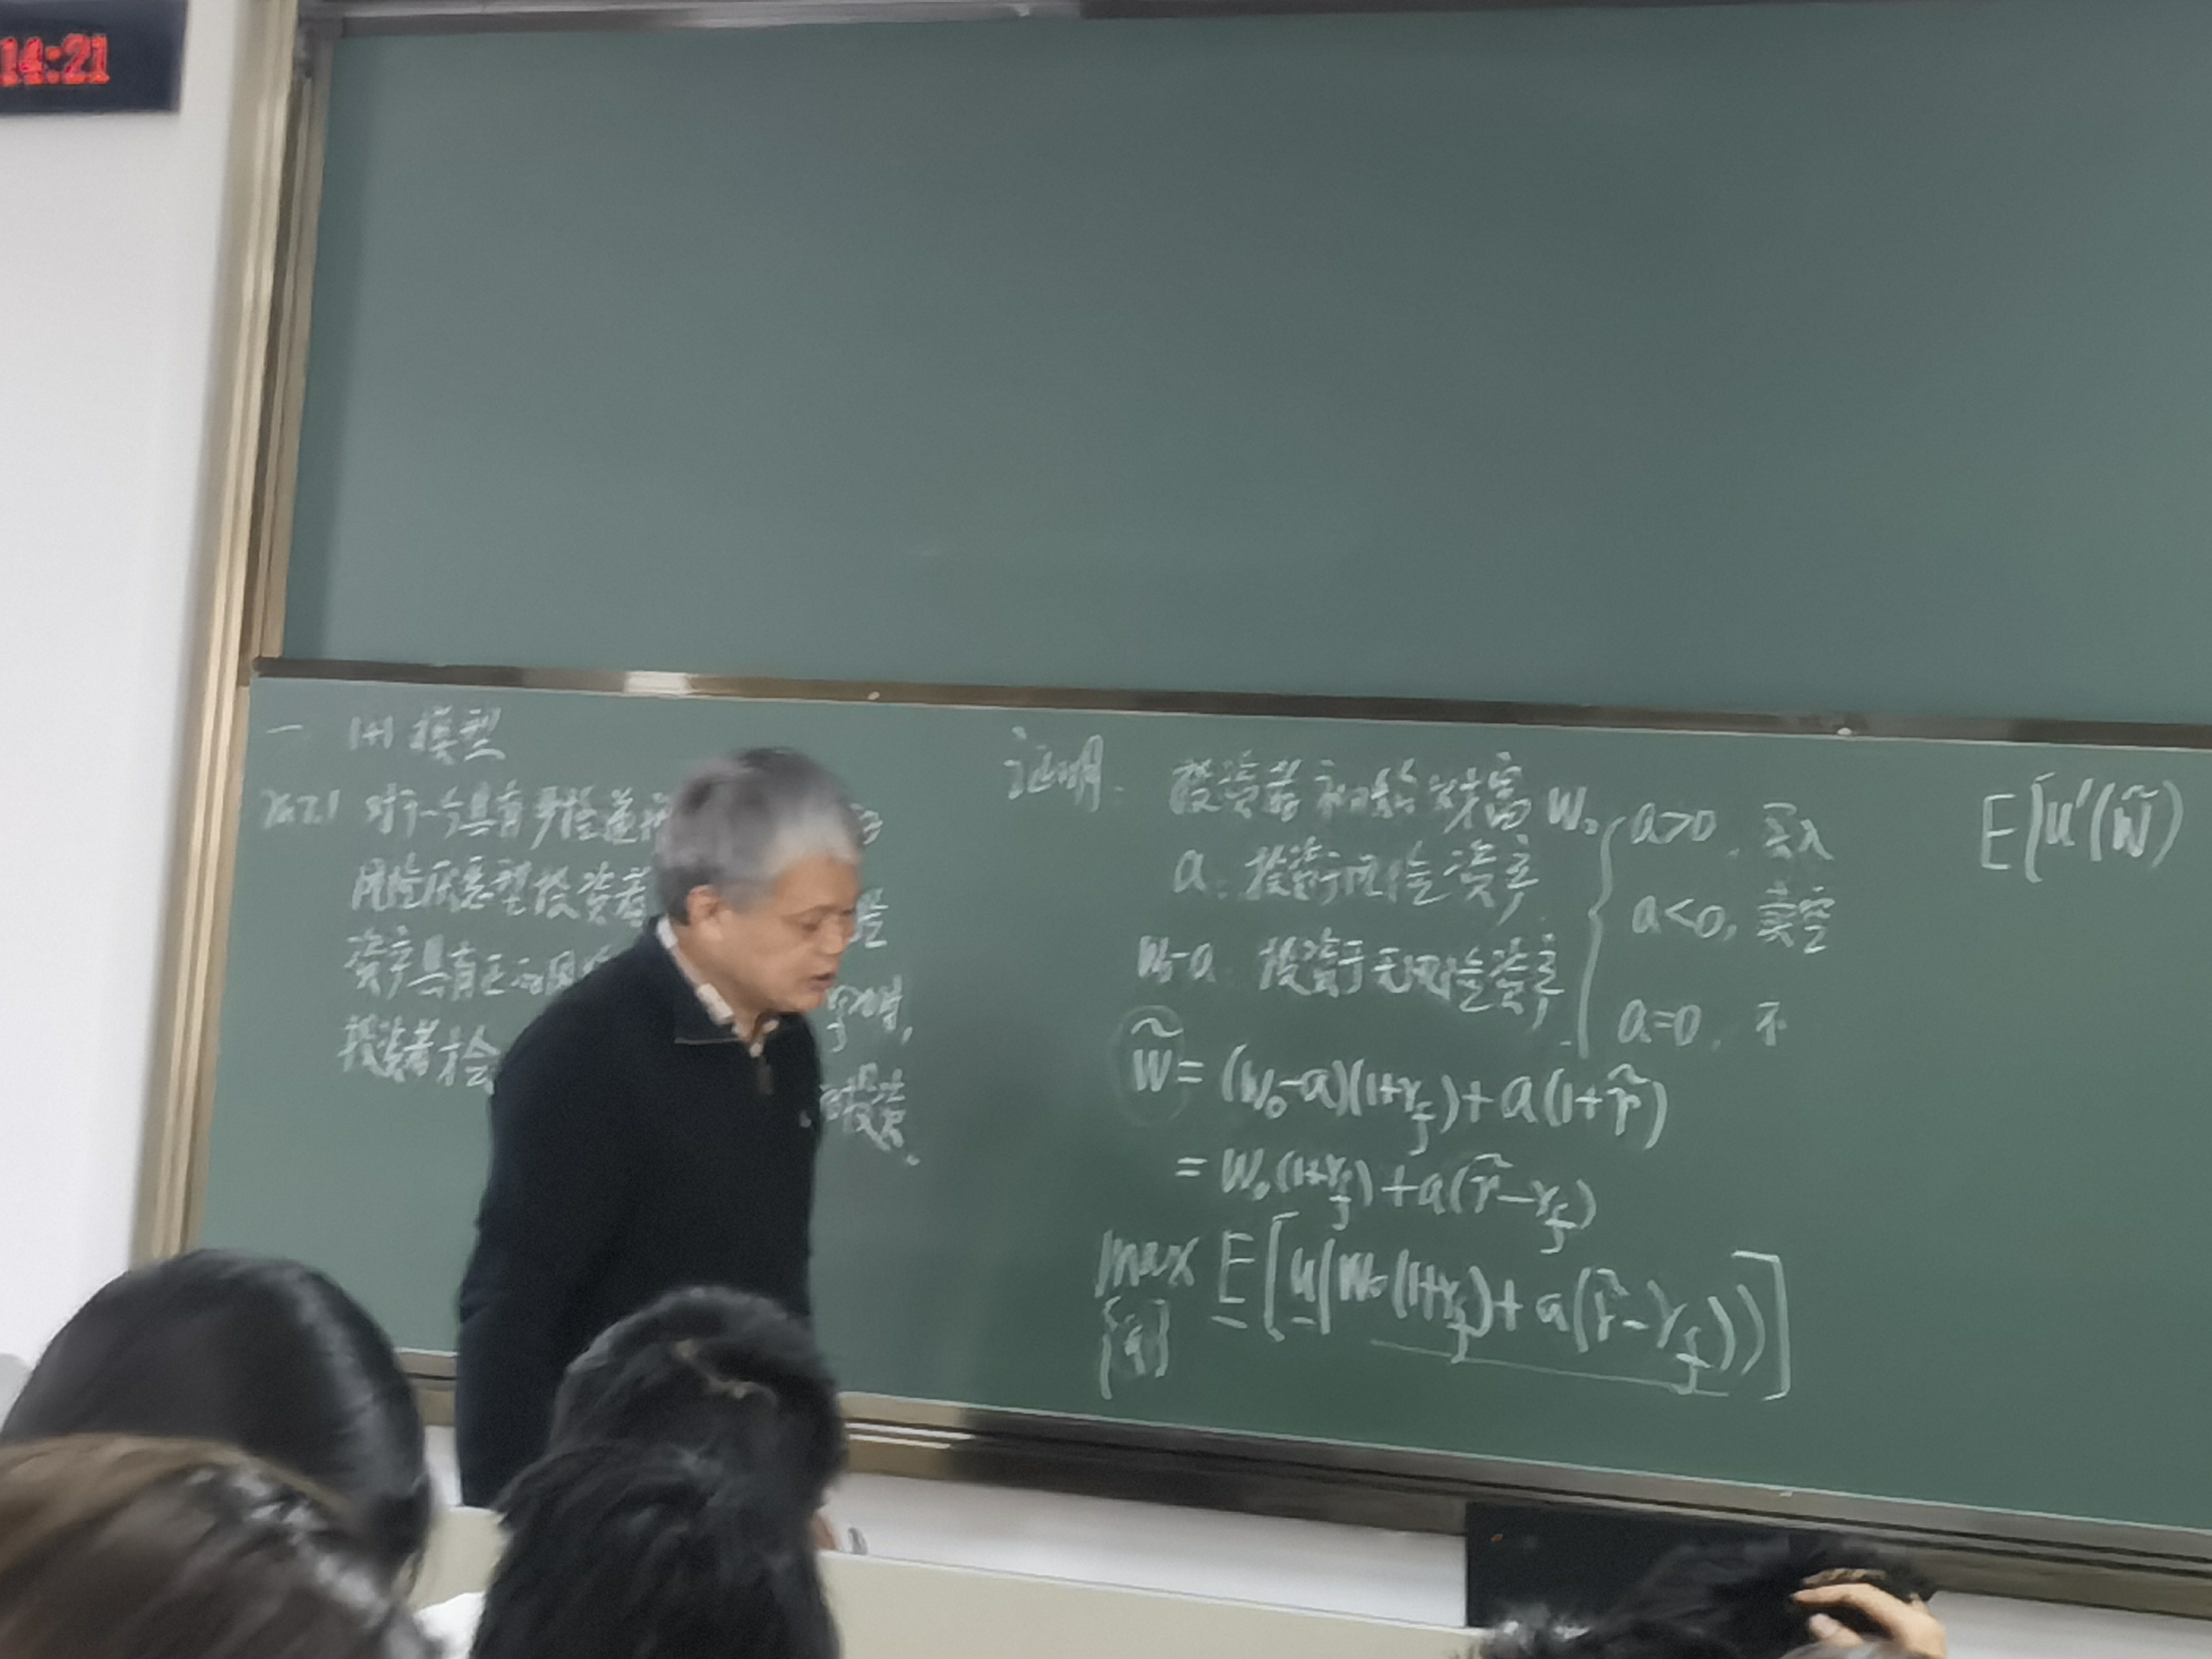 14:21
一 1+1 模型
对于一个具有严格递
风险厌恶型投资者
资产具有正的风
时,
投资者才会
投资.
证明: 投资者初始财富 W₀
a: 投资于风险资产.
W₀-a: 投资于无风险资产
a>0, 买入
a<0, 卖空
a=0, 不
W̃ = (W₀-a)(1+r_f)+a(1+r̃)
= W₀(1+r_f)+a(r̃-r_f)
max E[u(W₀(1+r_f)+a(r̃-r_f))]
{a}
E[u'(W̃)